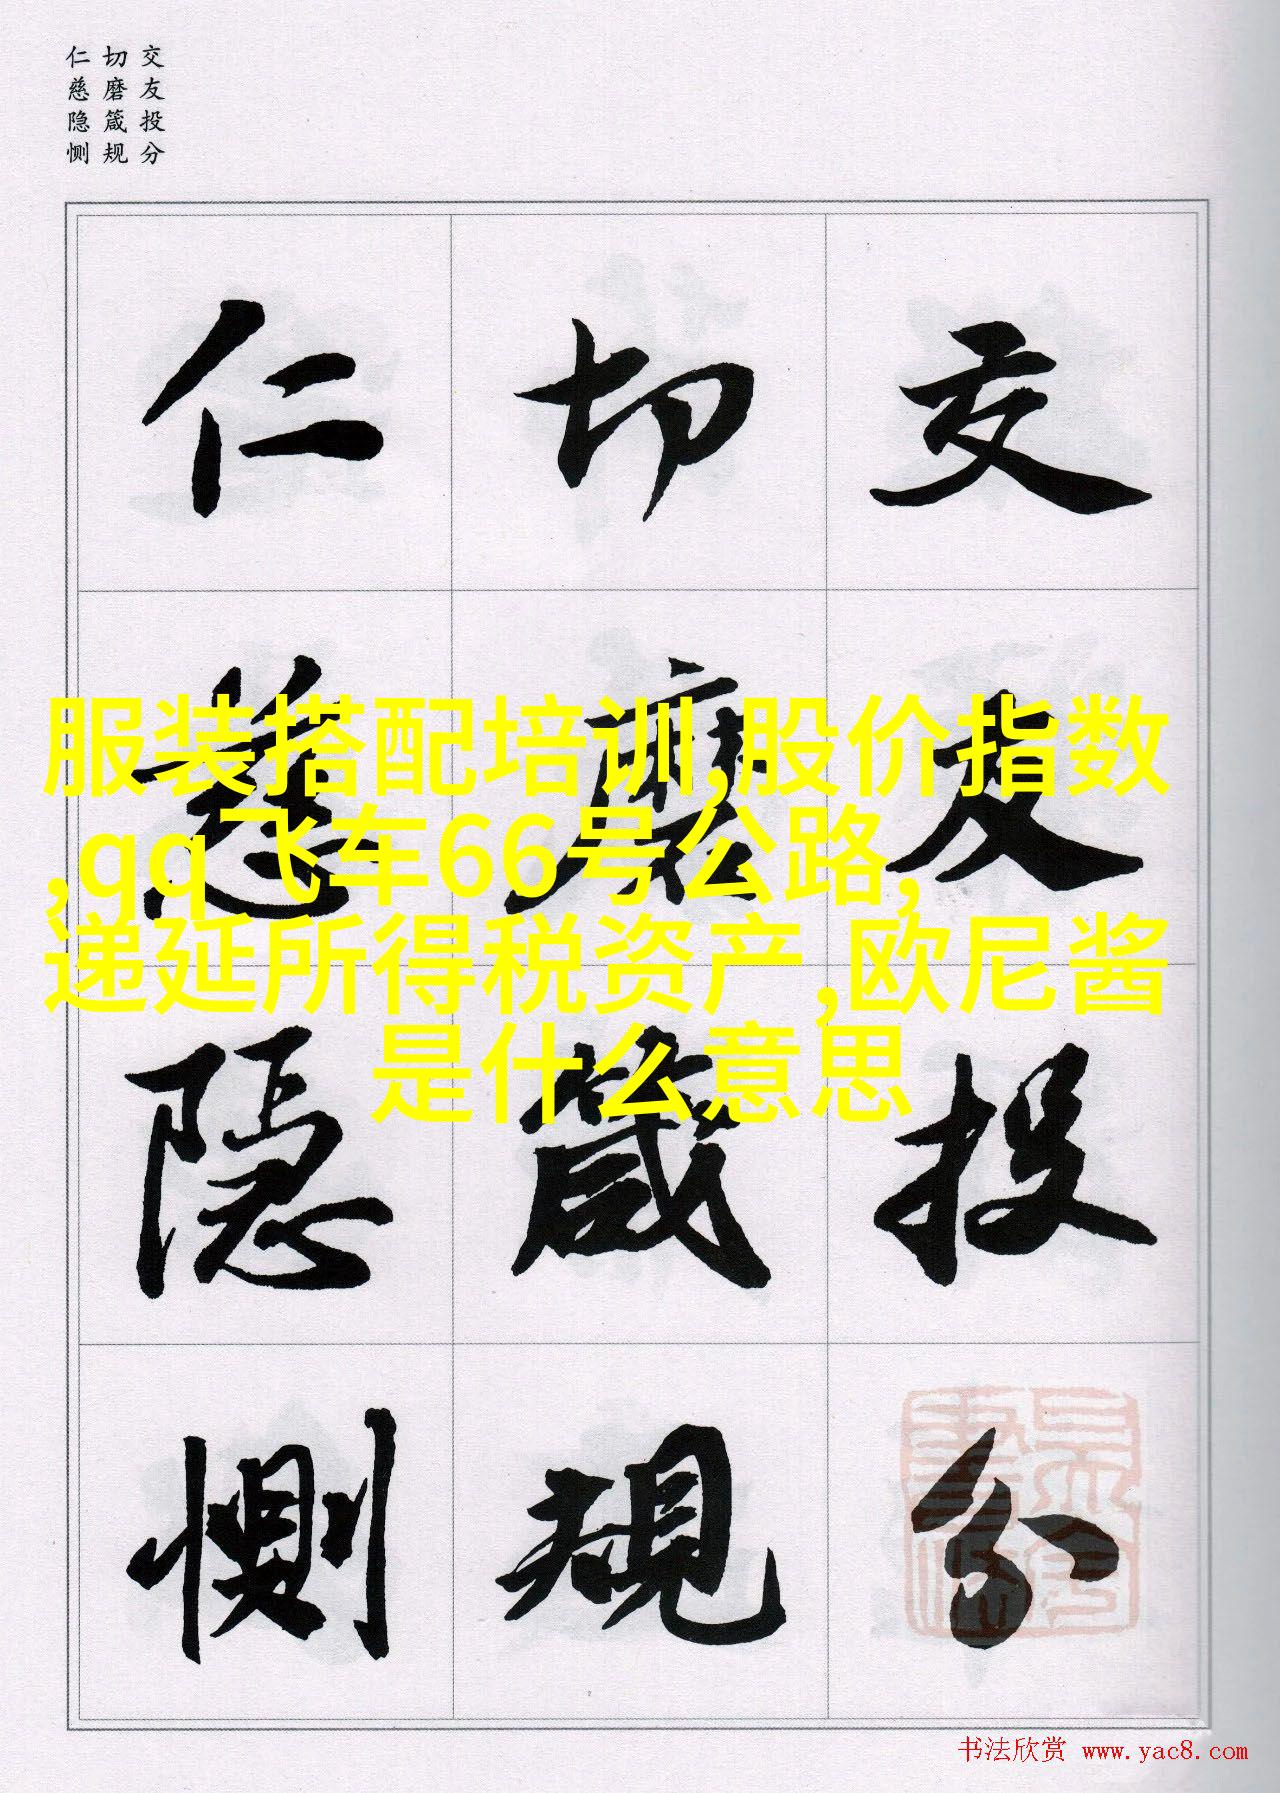 交友投分
切磨箴规
仁慈隐恻
交友投分
切磨箴規
仁慈隐恻
服装搭配培训,股价指数
,qq飞车66号公路,
递延所得税资产,欧尼酱
是什么意思
书法欣赏 www.yac8.com